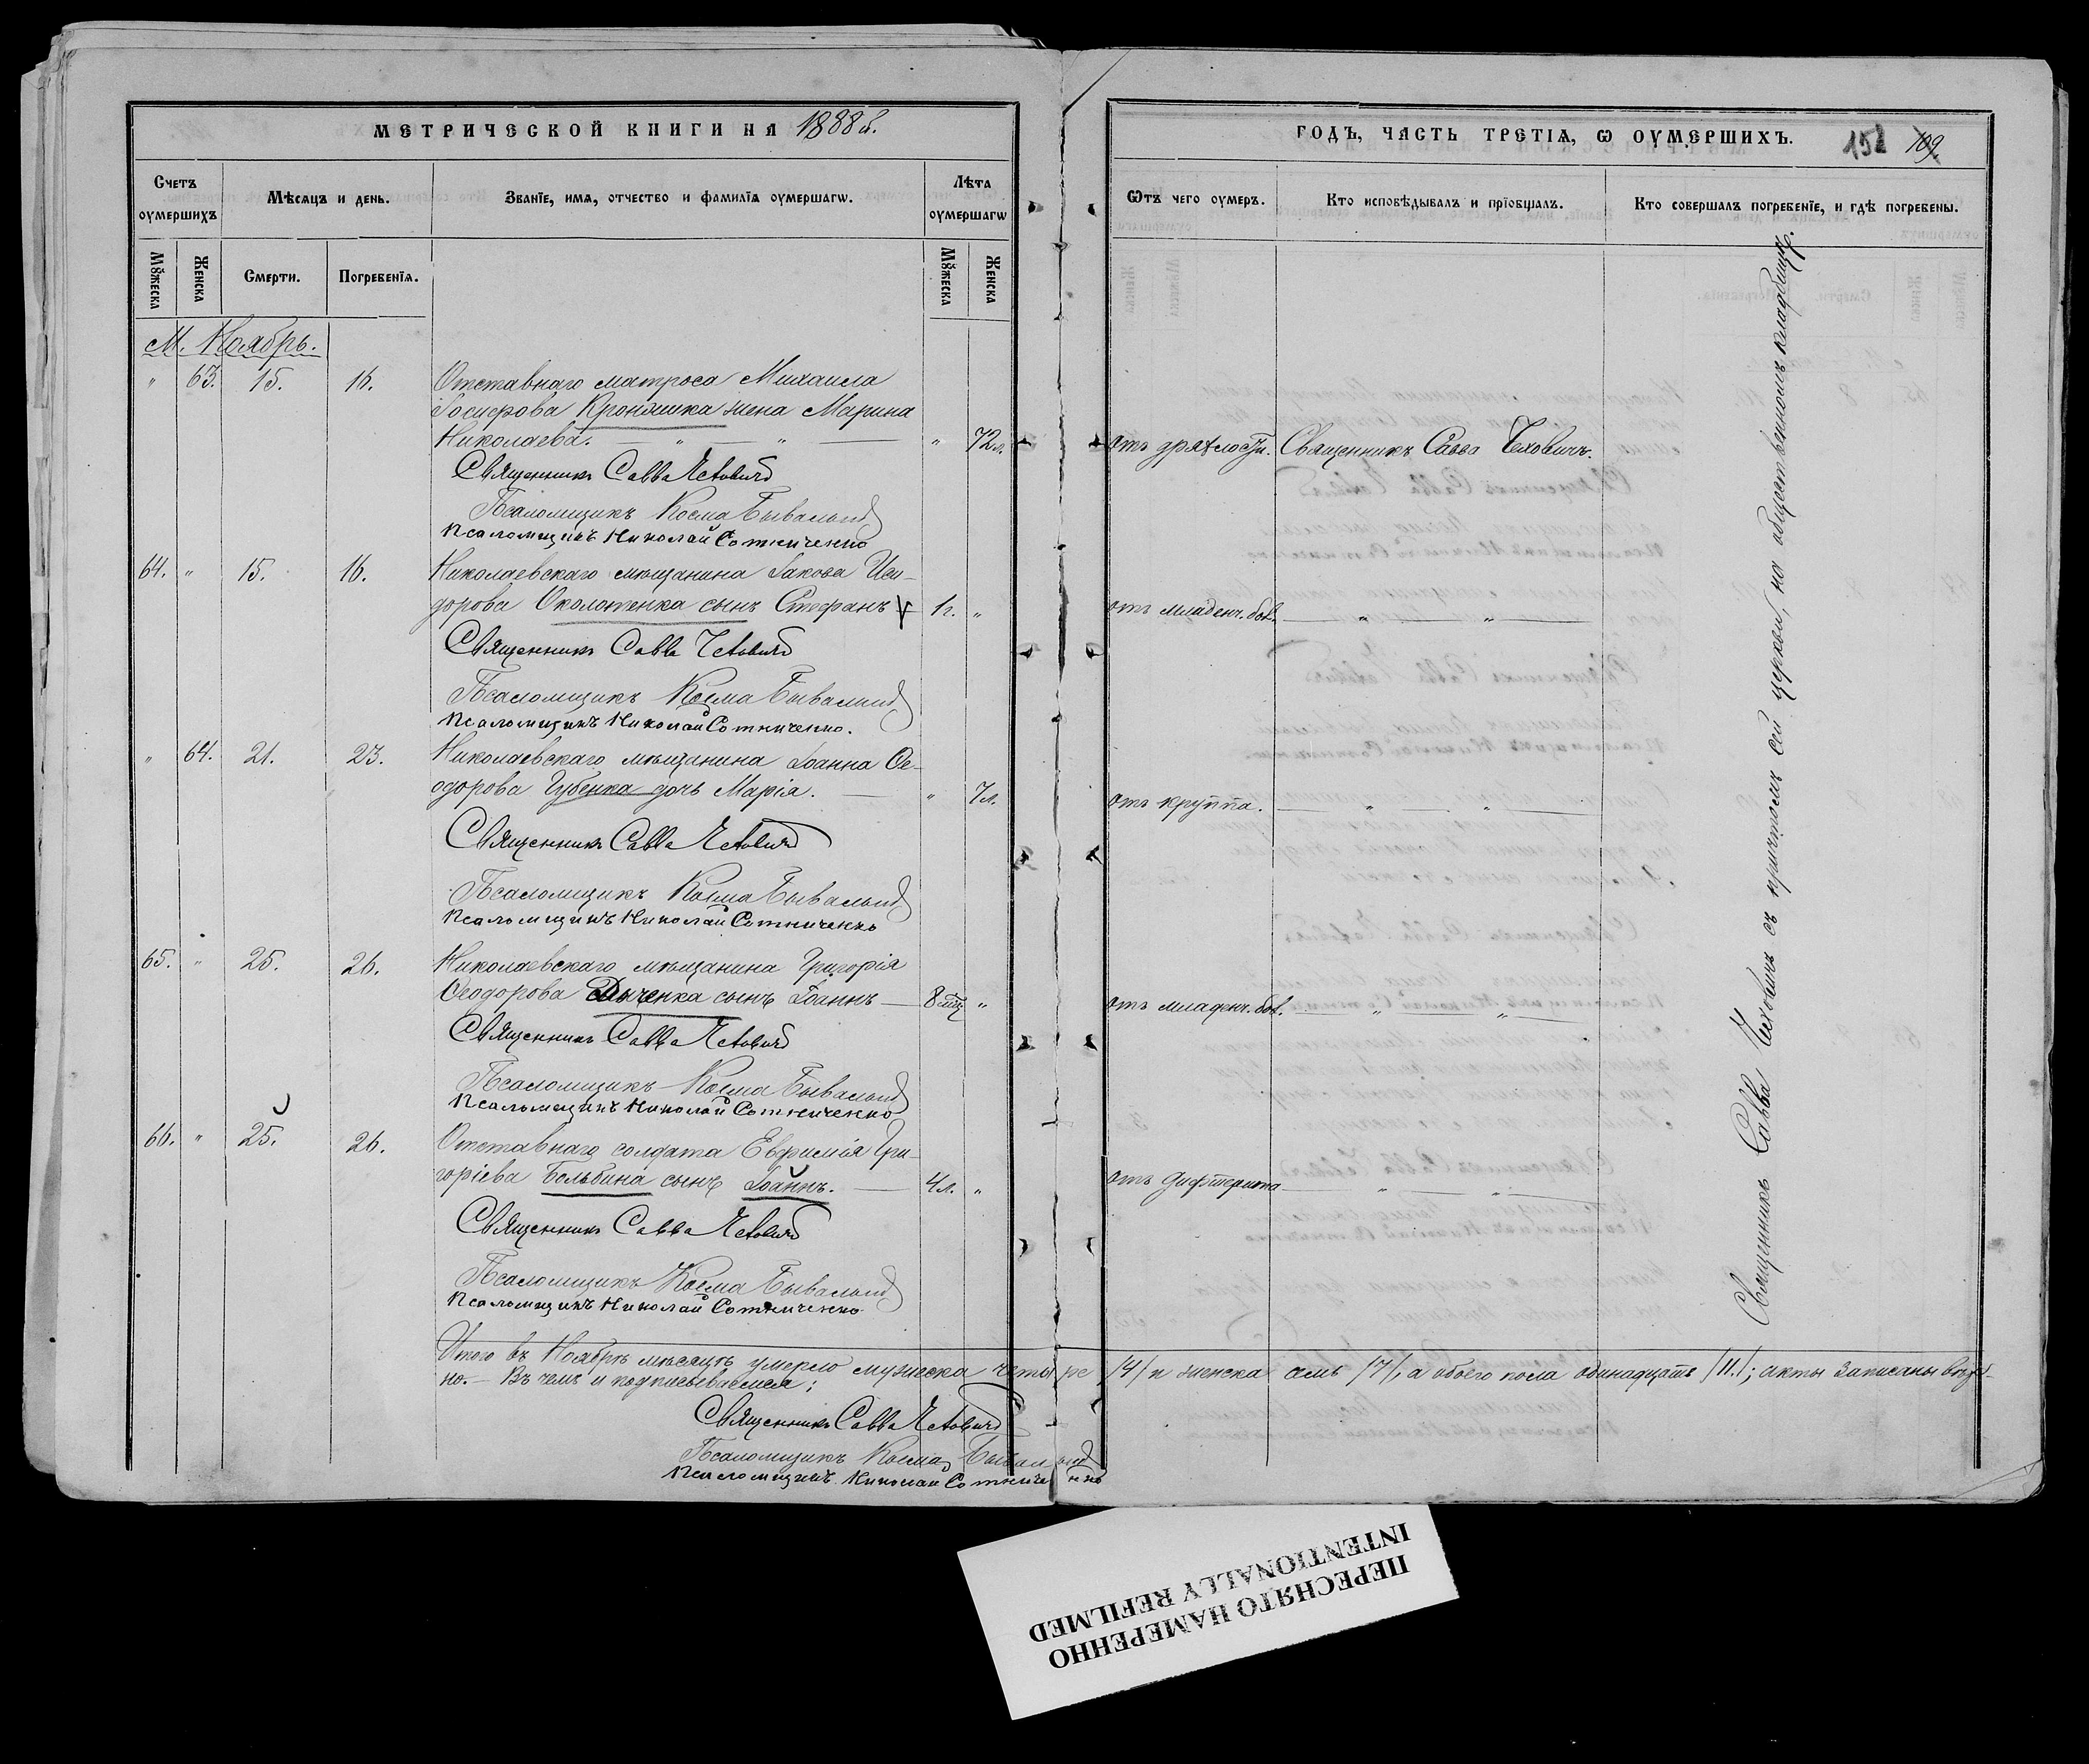 МЕТРИЧЕСКОЙ КНИГИ НА 1888й.
Счетъ оумершихъ
Мѣсяцъ и день.
Званїе, имя, отчество и фамилїа оумершагѡ.
Лѣта оумершагѡ
Мꙋжеска
Женска
Смерти.
Погребенїя.
Мꙋжеска
Женска
М. Ноябрь.
" 63. 15. 16. Отставнаго матроса Михаила
Іосифова Кроняшка жена Марина
Николаева. — " — " — " 72 л.
Священникъ Савва Чеховичъ
Псаломщикъ Косма Бывалый
Псаломщикъ Николай Сотниченко
64. " 15. 16. Николаевскаго мѣщанина Іакова Иси-
дорова Околотенка сынъ Стефанъ 1 г. "
Священникъ Савва Чеховичъ
Псаломщикъ Косма Бывалый
Псаломщикъ Николай Сотниченко.
" 64. 21. 23. Николаевскаго мѣщанина Іоанна Ѳе-
одорова Губенка дочь Марія. — " 7 л.
Священникъ Савва Чеховичъ
Псаломщикъ Косма Бывалый
Псаломщикъ Николай Сотниченко
65. " 25. 26. Николаевскаго мѣщанина Григорія
Ѳеодорова сынъ Іоаннъ — 8 мц "
Священникъ Савва Чеховичъ
Псаломщикъ Косма Бывалый
Псаломщикъ Николай Сотниченко
66. " 25. 26. Отставнаго солдата Евфимія Гри-
горіева Больбина сынъ Іоаннъ. — 4 л. "
Священникъ Савва Чеховичъ
Псаломщикъ Косма Бывалый
Псаломщикъ Николай Сотниченко
Итого въ Ноябрѣ мѣсяцѣ умерло мужеска четыре /4/ и женска семь /7/, а обоего пола одинадцать /11./; акты записаны вѣр-
но. — Въ чемъ и подписываемся:
Священникъ Савва Чеховичъ
Псаломщикъ Косма Бывалый
Псаломщикъ Николай Сотниченко
ГОДЪ, ЧАСТЬ ТРЕТІЯ, Ѡ ОУМЕРШИХЪ. 152 109.
Ѿтъ чего оумеръ.
Кто исповѣдывалъ и прїобщалъ.
Кто совершалъ погребенїе, и гдѣ погребены.
отъ дряхлости. Священникъ Савва Чеховичъ.
отъ младенч. бол. — " — " —
отъ круппа. — " — " —
отъ младенч. бол. — " — " —
отъ дифтерита — " — " —
Священникъ Савва Чеховичъ съ причтомъ сей церкви, на общественномъ кладбищѣ.
ПЕРЕСНЯТО НАМЕРЕННО
INTENTIONALLY REFILMED